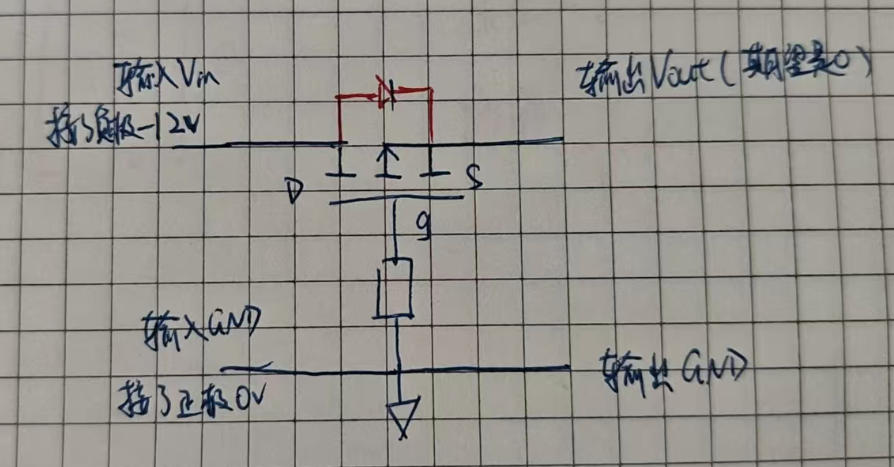 输入Vin
接了负极-12V
输出Vout(期望是0)
D
S
g
输入GND
接了正极0V
输出GND